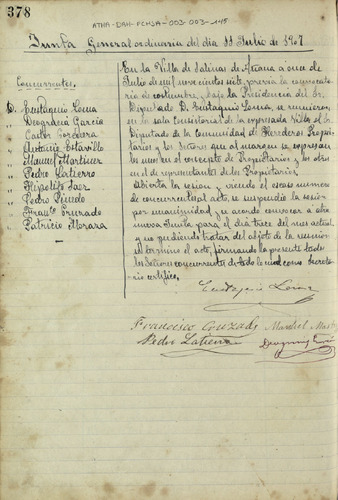 378
ATHA-DAH-FCHSA-003-003-145
Junta General ordinaria del dia 11 Julio de 1907
Concurrentes.
D. Eustaquio Loma
" Deogracia García
" Carlos
" Antonio Estavillo
" Manuel Martinez
" Pedro Latierro
" Hipolito Saez
" Pedro Pinedo
" Franco Conzado
" Patricio Morara
En la Villa de Salinas de Añana a once de
Julio de mil novecientos siete, previa la convocato
ria de costumbre, bajo la Presidencia del Sr.
Diputado D. Eustaquio Loma, se reunieron,
en la sala consistorial de la expresada Villa, el Sr.
Diputado de la Comunidad de Herederos Propie
tarios y los Señores que al margen se expresan
los unos en el concepto de Propietarios y los otros
en el de representantes de los Propietarios.
Abierta la sesion y viendo el escaso numero
de concurrentes al acto, se suspendio la sesion
por unanimidad y se acordo convocar a otra
nueva Junta para el dia trece del mes actual
y no pudiendo tratar del objeto de la reunion
se termino el acto, firmando la presente todos
los Señores concurrentes de todo lo cual como Secreta
rio certifico.
Eustaquio Loma
Francisco Conzado Manuel
Pedro Latierro